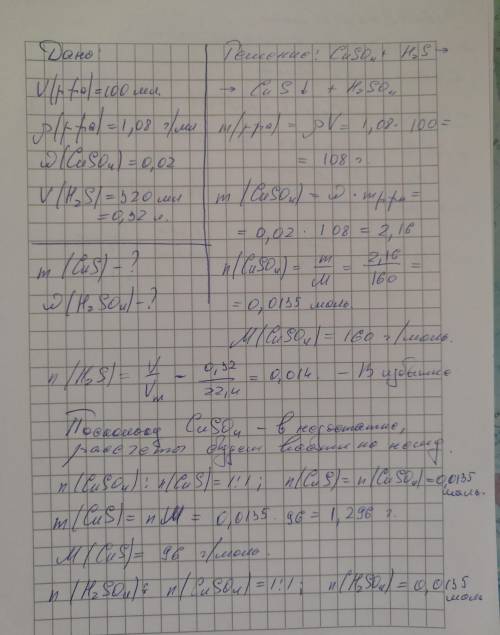 Дано:
V(р-ра)=100 мл.
ρ(р-ра)=1,08 г/мл
ω(CuSO₄)=0,02
V(H₂S)=320 мл
=0,32 л.
m(CuS)-?
ω(H₂SO₄)-?
Решение: CuSO₄+ H₂S→
→ CuS↓ + H₂SO₄
m(р-ра)= ρV= 1,08·100=
= 108 г.
m(CuSO₄)= ω·mр-ра=
=0,02·108=2,16
n(CuSO₄)= m/M = 2,16/160 =
=0,0135 моль.
M(CuSO₄)=160 г/моль.
n(H₂S)= V/Vm - 0,32/22,4 =0,014. - В избытке
Поскольку CuSO₄ - в недостатке,
расчеты будем вести по нему.
n(CuSO₄):n(CuS)=1:1; n(CuS)=n(CuSO₄)=0,0135
моль.
m(CuS)=nM= 0,0135·96=1,296 г.
M(CuS)= 96 г/моль.
n(H₂SO₄):n(CuSO₄)=1:1; n(H₂SO₄)=0,0135
моль